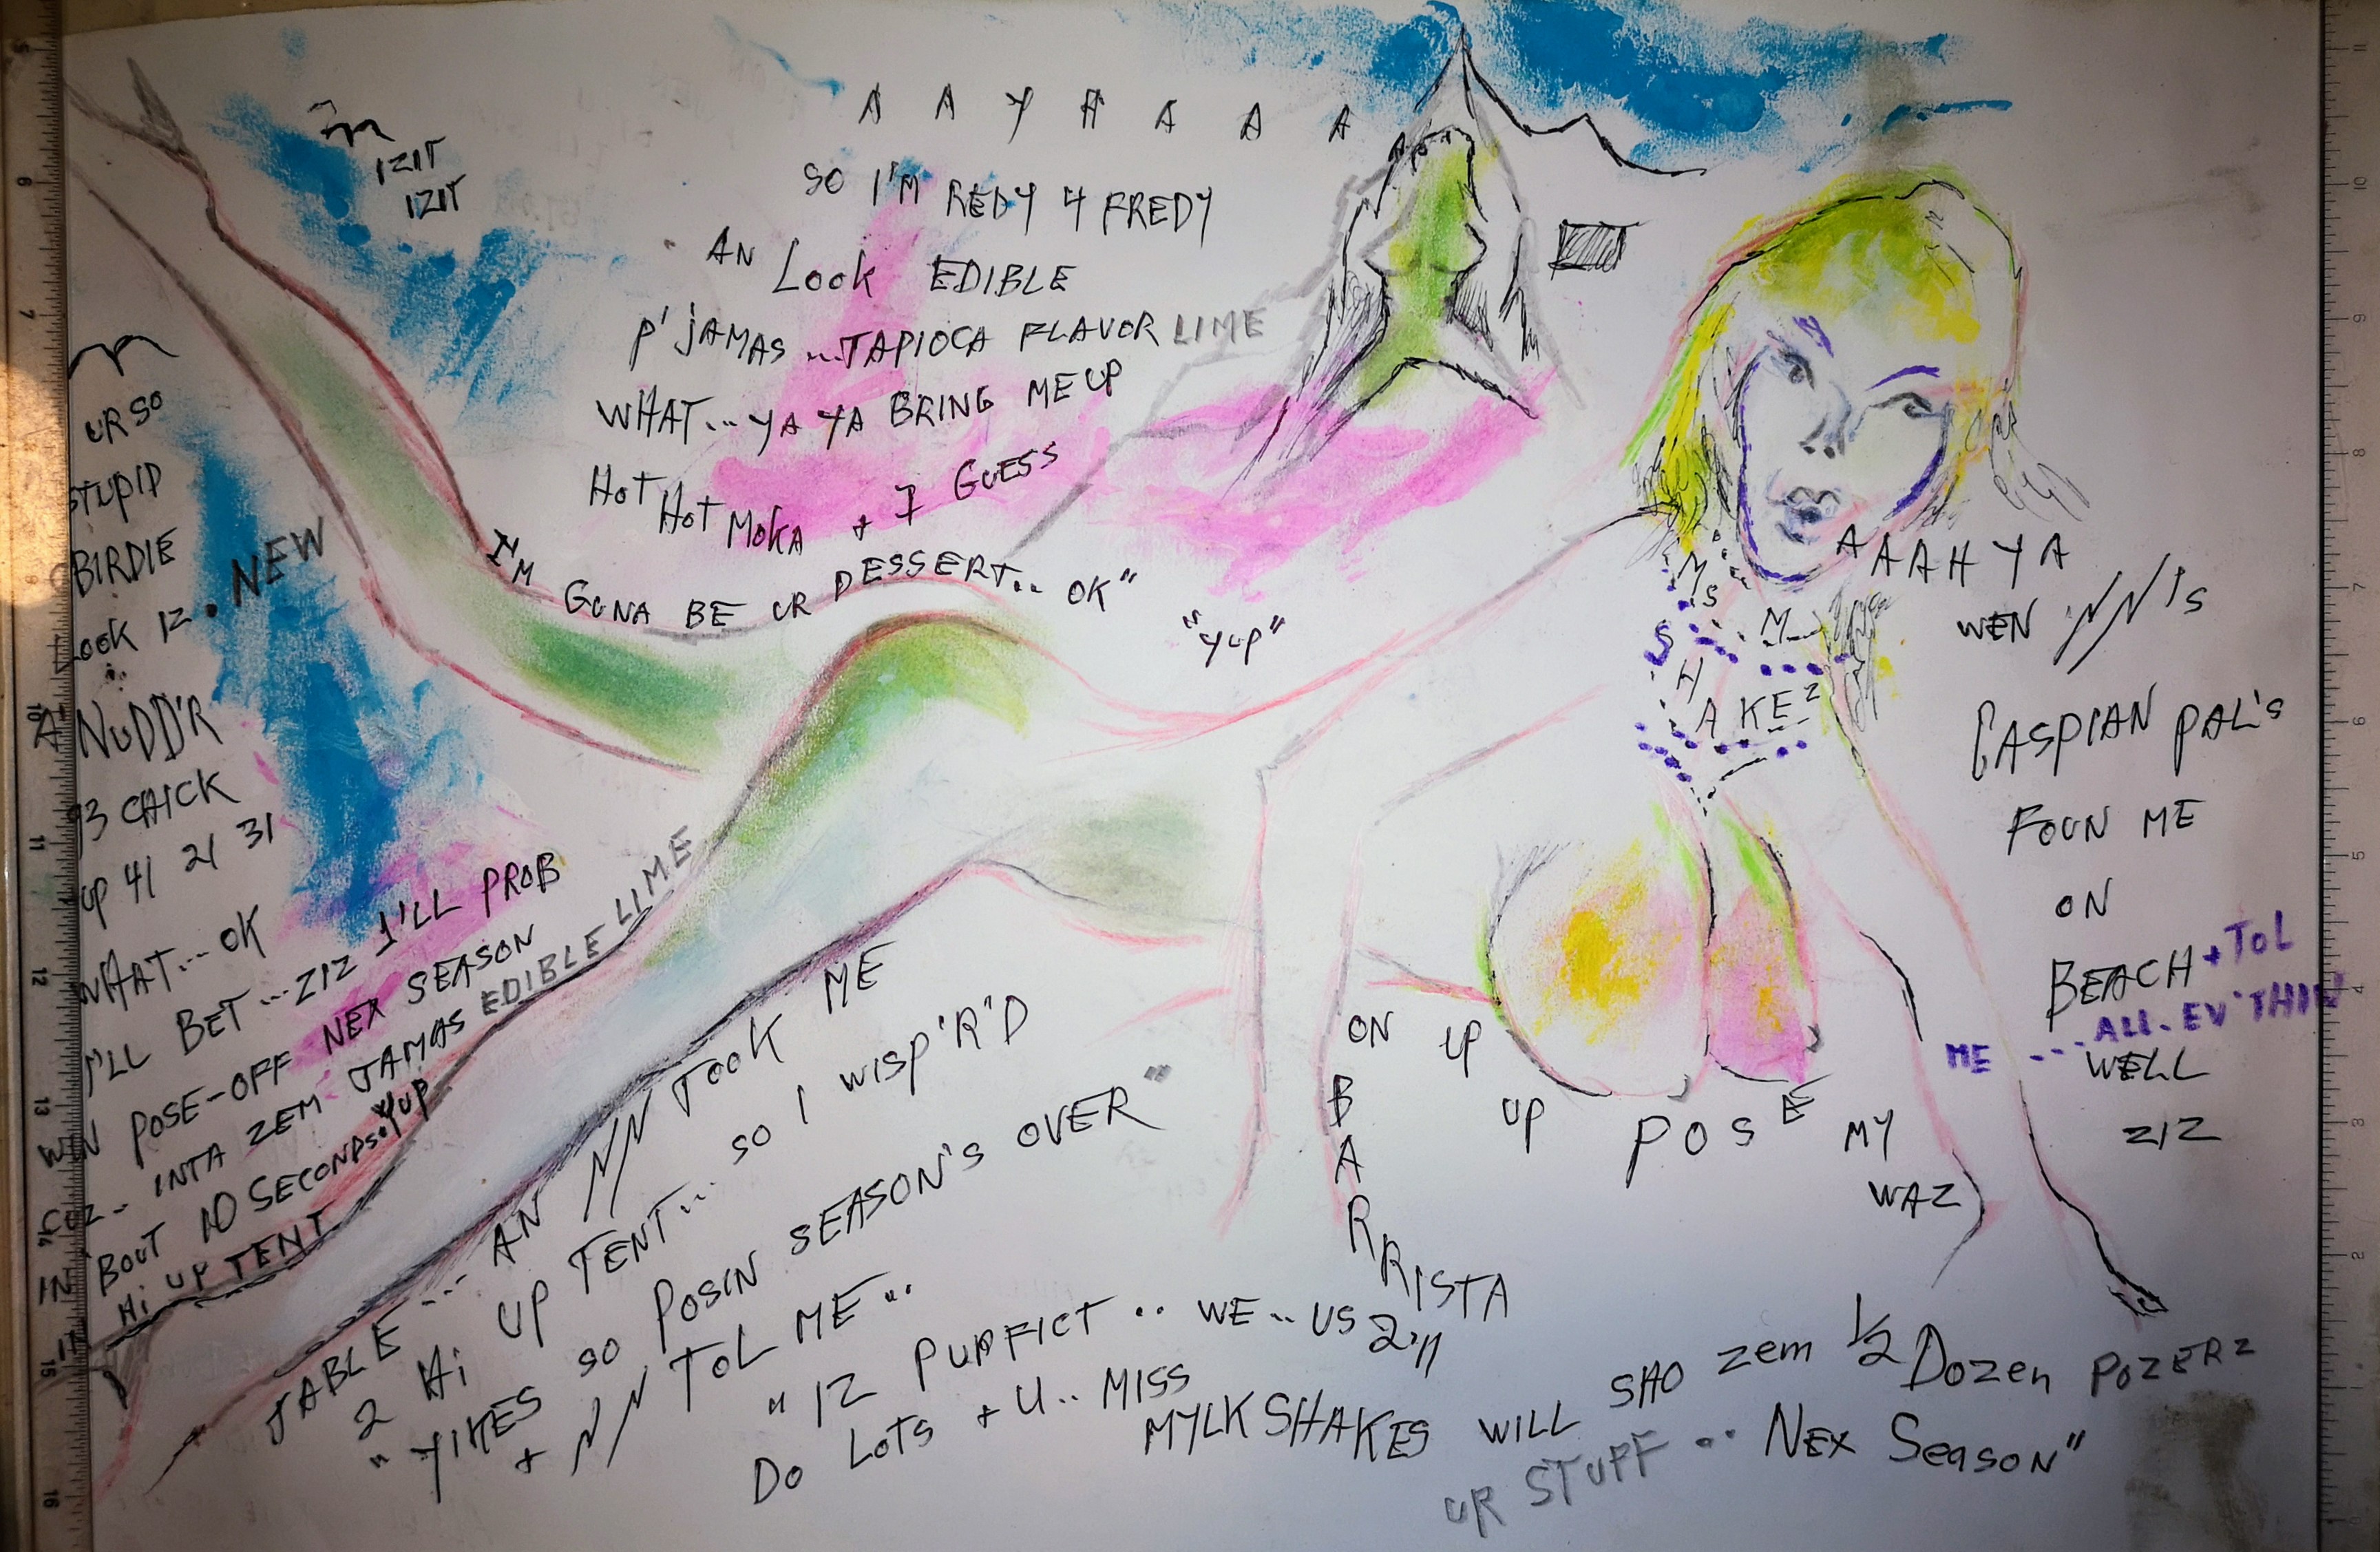 IZIT
IZIT
UR SO
STUPID
BIRDIE
LOOK IZ • NEW
A' NUDD'R
93 CHICK
UP 41 21 31
WHAT... OK
I'LL BET ... ZIZ I'LL PROB
WIN POSE-OFF NEX SEASON
CUZ.. INTA ZEM JAMAS EDIBLE LIME
IN 'BOUT 10 SECONDS. YUP
Hi UP TENT
A A Y A A A A
SO I'M REDY 4 FREDY
AN LOOK EDIBLE
P'JAMAS ... TAPIOCA FLAVOR LIME
WHAT... YA YA BRING ME UP
HOT HOT MOKA + I GUESS
I'M GUNA BE UR DESSERT.. OK"
"YUP"
AAAH YA
WEN NN'S
CASPIAN PAL'S
FOUN ME
ON
BEACH + TOL
ME --- ALL. EV'THIN
WELL
ZIZ
MS
M
SHAKEZ
ON UP
UP POSE MY
WAZ
BARRRISTA
TABLE --- AN NN TOOK ME
2 Hi UP TENT... SO I WISP'R'D
"YIKES SO POSIN SEASON'S OVER"
+ NN TOL ME..
"IZ PURFICT .. WE.. US 2'N
DO LOTS + U.. MISS
MYLKSHAKES WILL SHO ZEM 1/2 DOZEN POZERZ
UR STUFF .. NEX SEASON"